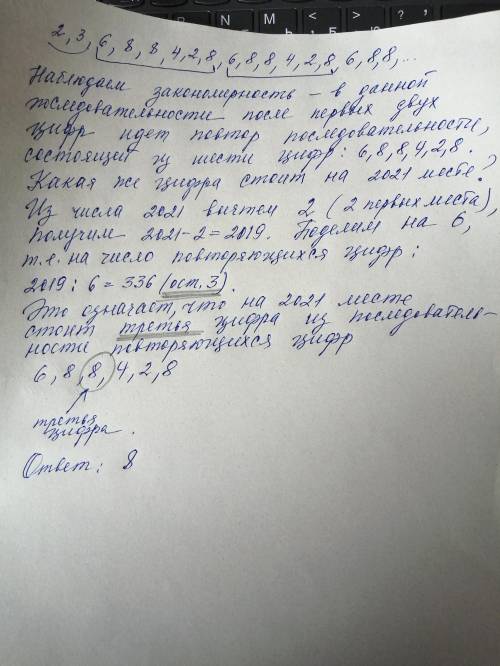 2, 3, 6, 8, 8, 4, 2, 8, 6, 8, 8, 4, 2, 8, 6, 8, 8, ...
Наблюдаем закономерность – в данной
последовательности после первых двух
цифр идет повтор последовательности,
состоящей из шести цифр: 6, 8, 8, 4, 2, 8.
Какая же цифра стоит на 2021 месте?
Из числа 2021 вычтем 2 (2 первых места),
получим 2021-2=2019. Поделим на 6,
т.е. на число повторяющихся цифр:
2019 : 6 = 336 (ост. 3).
Это означает, что на 2021 месте
стоит третья цифра из последователь-
ности повторяющихся цифр
6, 8, 8, 4, 2, 8
третья
цифра.
Ответ: 8